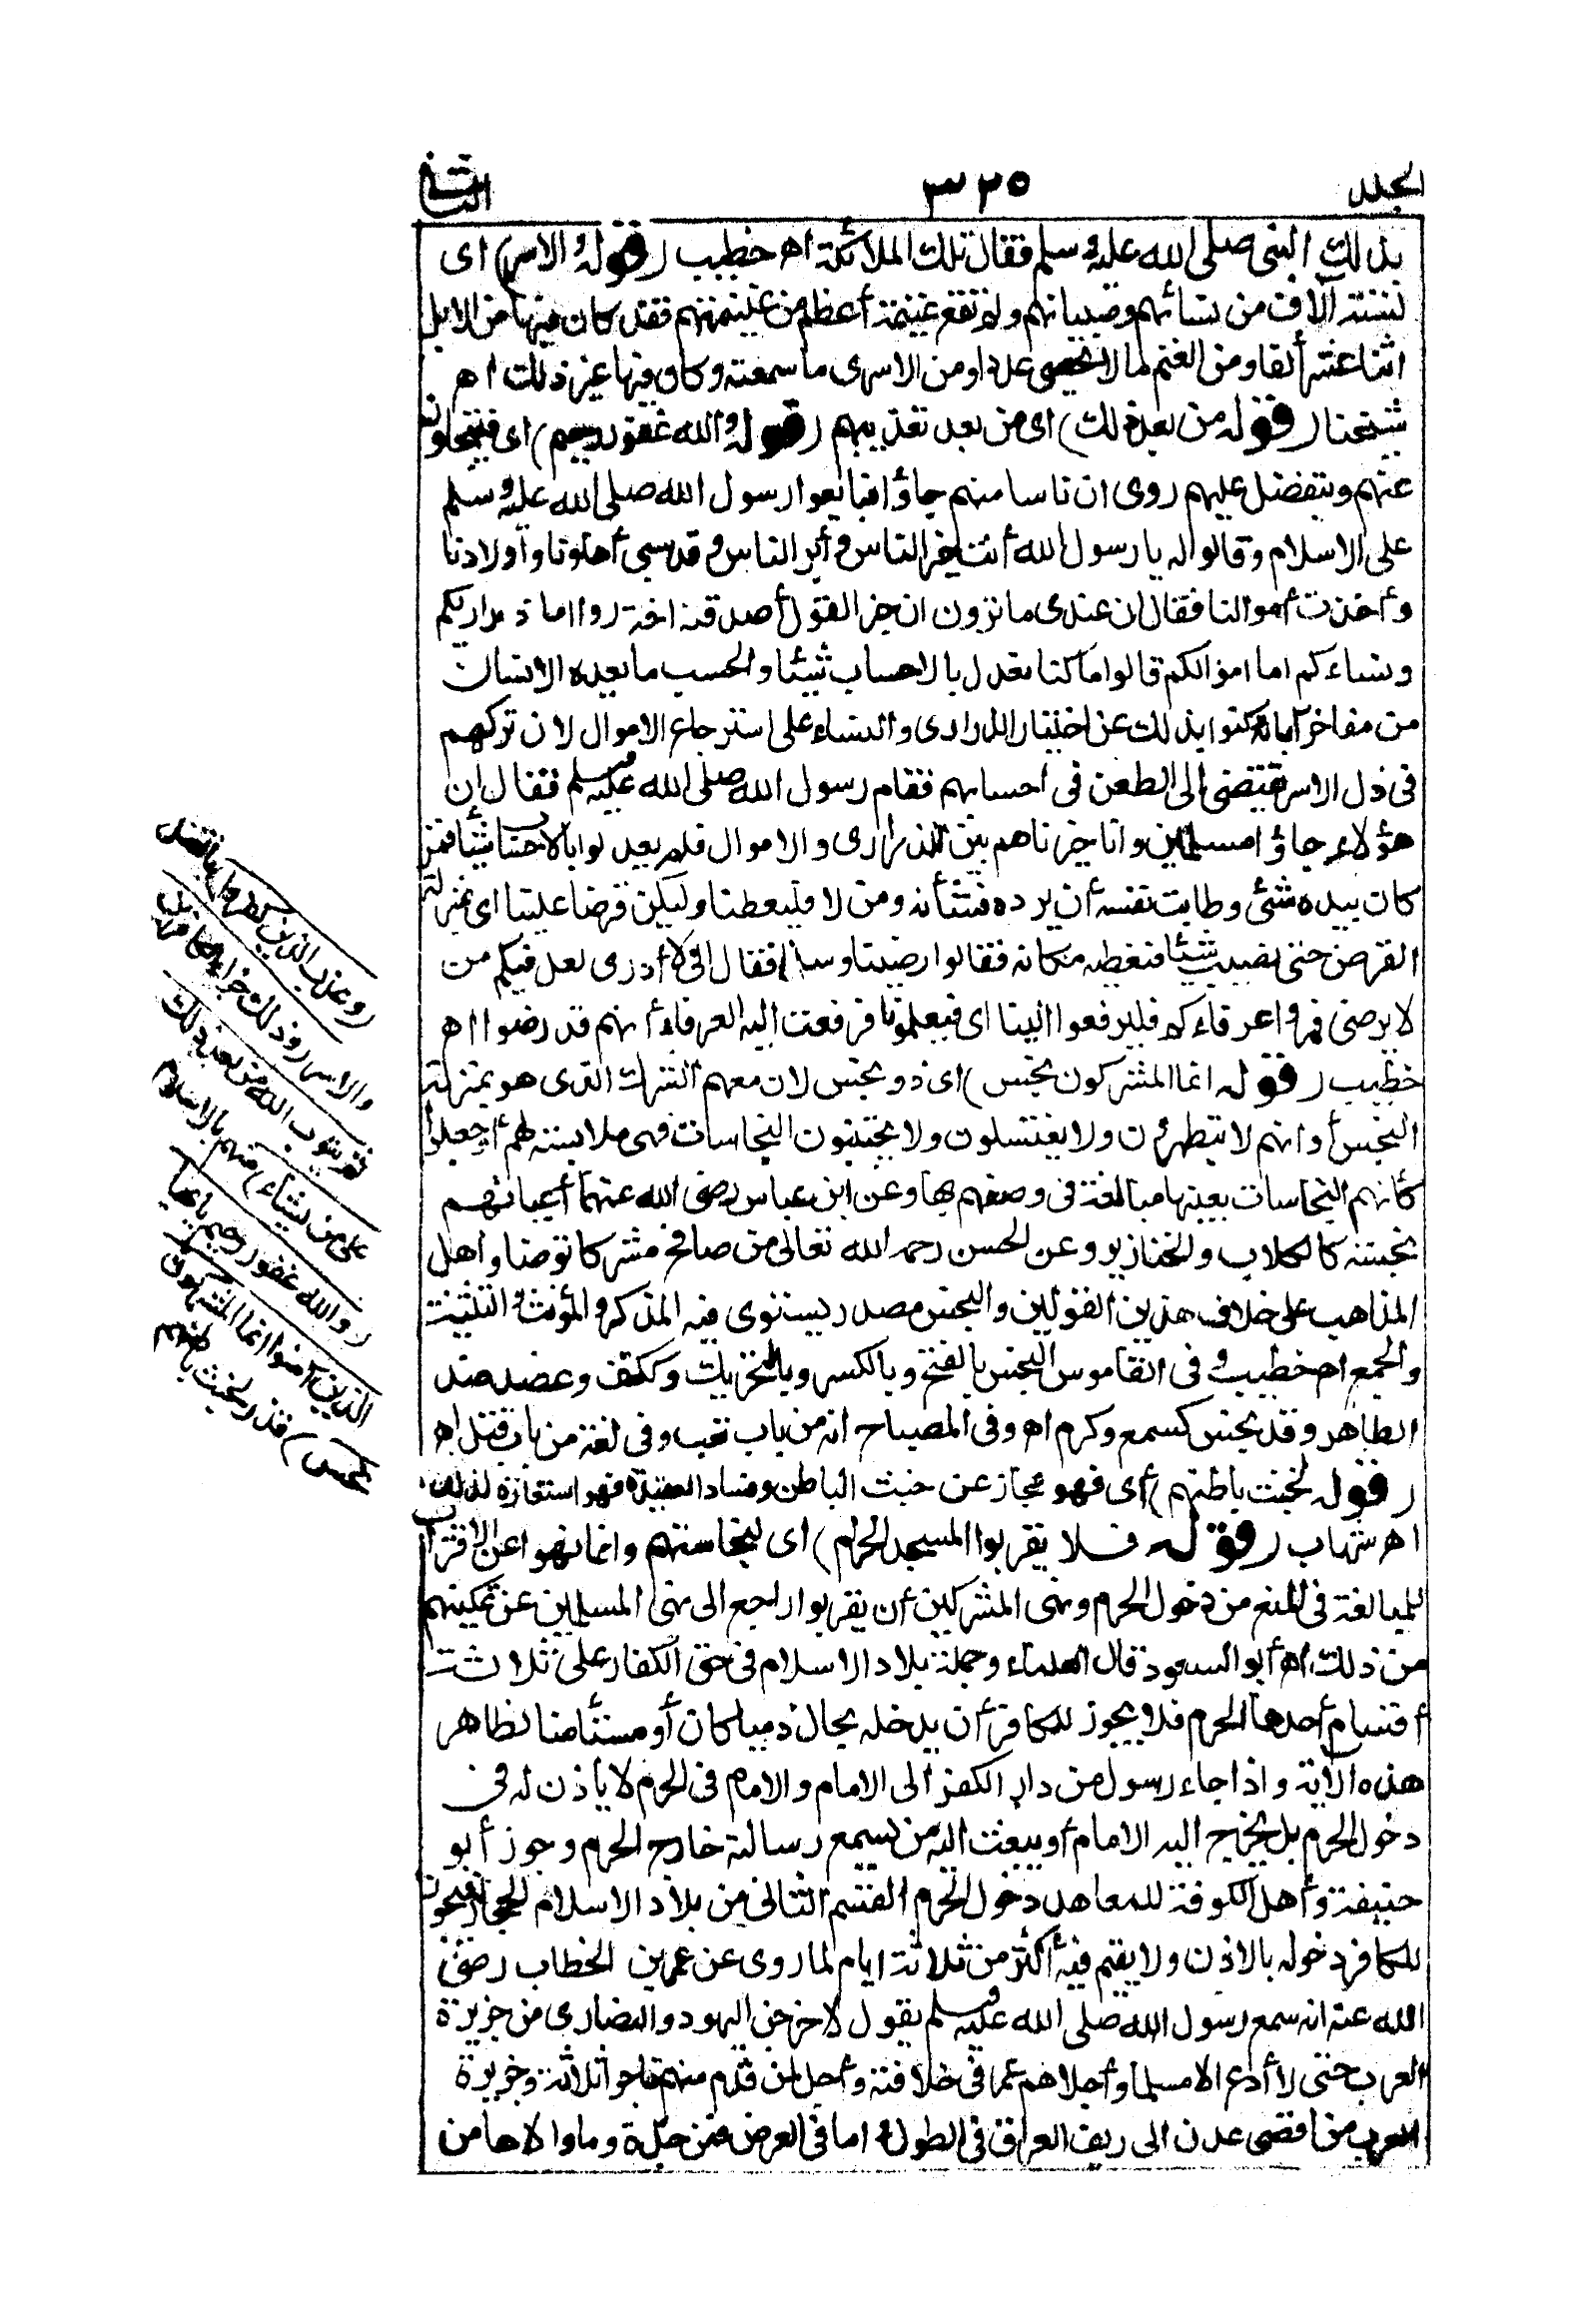 الجلد ٣٢٥ التاسع
بذلك النبي صلى الله عليه وسلم فقال تلك الملائكة اه خطيب (قوله والاسر) اى
لستة آلاف من نسائهم وصبيانهم ولم تقع غنيمة أعظم من غنيمتهم فقد كان فيها من الابل
اثنا عشر ألفا ومن الغنم لما لا يحصى عددا ومن الاسرى ما سمعته وكان فيها غير ذلك اه
شيخنا (قوله من بعد ذلك) اى من بعد تعذيبهم (قوله والله غفور رحيم) اى فيتجاوز
عنهم ويتفضل عليهم روى ان ناسا منهم جاؤا فبايعوا رسول الله صلى الله عليه وسلم
على الاسلام وقالوا له يا رسول الله أنت خير الناس وأبر الناس وقد سبى أهلونا وأولادنا
وأخذت أموالنا فقال ان عندى ما ترون ان خير القول أصدقه اختاروا اما ذراريكم
ونساءكم اما اموالكم قالوا ما كنا نعدل بالاحساب شيئا والحسب ما يعده الانسان
من مفاخر آبائه كنوا بذلك عن اختيار الذرارى والنساء على استرجاع الاموال لان تركهم
فى ذل الاسر يفضى الى الطعن فى احسابهم فقام رسول الله صلى الله عليه وسلم فقال ان
هؤلاء جاؤا مسلمين وانا خيرناهم بين الذرارى والاموال فلم يعدلوا بالاحساب شيئا فمن
كان بيده شئ وطابت نفسه أن يرده فشأنه ومن لا فليعطنا وليكن قرضا علينا اى بمنزلة
القرض حتى نصيب شيئا فنعطيه مكانه فقالوا رضينا وسلمنا فقال انى لا أدرى لعل فيكم من
لا يرضى فمروا عرفاءكم فليرفعوا الينا اى فيعلمونا فرفعت اليه العرفاء أنهم قد رضوا اه
خطيب (قوله انما المشركون نجس) اى ذو نجس لان معهم الشرك الذى هو بمنزلة
النجس أو انهم لا يتطهرون ولا يغتسلون ولا يجتنبون النجاسات فهى ملابسة لهم أو جعلوا
كأنهم النجاسات بعينها مبالغة فى وصفهم بها وعن ابن عباس رضى الله عنهما أعيانهم
نجسة كالكلاب والخنازير وعن الحسن رحمه الله تعالى من صافح مشركا توضأ وأهل
المذاهب على خلاف هذين القولين والنجس مصدر يستوى فيه المذكر والمؤنث والتثنية
والجمع اه خطيب وفى القاموس النجس بالفتح وبالكسر وبالتحريك وككتف وعضد ضد
الطاهر وقد نجس كسمع وكرم اه وفى المصباح انه من باب تعب وفى لغة من باب قتل اه
(قوله لخبث باطنهم) أى فهو مجاز عن خبث الباطن وفساد العقيدة فهو استعارة لذلك
اه شهاب (قوله فلا يقربوا المسجد الحرام) اى لنجاستهم وانما نهوا عن الاقتراب
للمبالغة فى المنع من دخول الحرم ونهى المشركين أن يقربوا راجع الى نهى المسلمين عن تمكينهم
من ذلك اه أبو السعود قال العلماء وجملة بلاد الاسلام فى حق الكفار على ثلاثة
أقسام أحدها الحرم فلا يجوز للكافر أن يدخله بحال ذميا كان أو مستأمنا لظاهر
هذه الآية واذا جاء رسول من دار الكفر الى الامام والامام فى الحرم لا يأذن له فى
دخول الحرم بل يخرج اليه الامام أو يبعث اليه من يسمع رسالته خارج الحرم وجوز أبو
حنيفة وأهل الكوفة للمعاهد دخول الحرم القسم الثانى من بلاد الاسلام الحجاز فيجوز
للكافر دخوله بالاذن ولا يقيم فيه أكثر من ثلاثة ايام لما روى عن عمر بن الخطاب رضى
الله عنه انه سمع رسول الله صلى الله عليه وسلم يقول لاخرجن اليهود والنصارى من جزيرة
العرب حتى لا أدع الا مسلما وأجلاهم عمر فى خلافته وأجل لمن قدم منهم تاجرا ثلاثة وجزيرة
العرب من اقصى عدن الى ريف العراق فى الطول اما فى العرض فمن جدة وما والاها من
(وعذب الذين كفروا) بالقتل
والاسر (وذلك جزاء الكافرين
ثم يتوب الله من بعد ذلك
على من يشاء) منهم بالاسلام
(والله غفور رحيم يا أيها
الذين آمنوا انما المشركون
نجس) قذر لخبث باطنهم